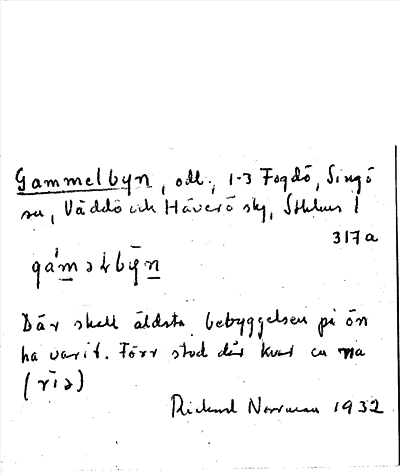 Gammelbyn, odl., 1-3 Fogdö, Singö
sn, Väddö och Häverö skg, Sthlms l
317a
gáməlbȳn
Där skall äldsta bebyggelsen på ön
ha varit. Förr stod där kvar en ria
(rīa)
Rickard Norrman 1932